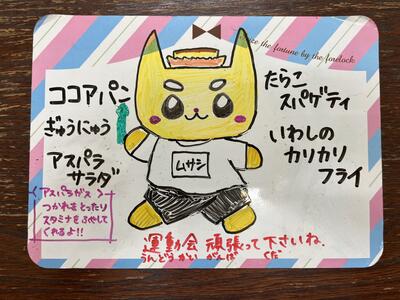 ze the fortune by the forelock
ココアパン
ぎゅうにゅう
アスパラ
サラダ
アスパラガス
つかれをとったり
スタミナをふやして
くれるよ!!
ムサシ
たらこ
スパゲティ
いわしの
カリカリ
フライ
運動会 頑張って下さいね。
うんどうかい がんば くだ